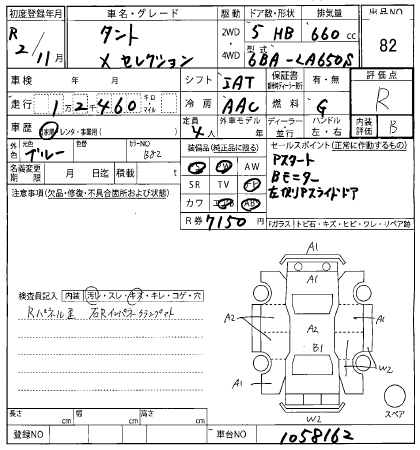 初度登録年月 車名・グレード 駆動 ドア数・形状 排気量 出品NO
R 2/11月 タント X セレクション 2WD・4WD 5 HB 660 cc 82
6BA-LA650S
車検 年 月 シフト IAT 保証書 有・無 評価点
走行 1万2千460 キロ・マイル 冷房 AAC 燃料 G R
車歴 自家用・レンタ・事業用( ) 定員 4人 外車モデル 年 ディーラー・並行 ハンドル 左・右 内装評価 B
外色 元色 ブルー 色替 カラーNO B82
装備品(純正品に限る) セールスポイント(正常に作動するもの)
名義変更期限 月 日迄 積載 t
AW Pスタート
SR TV Bモニター
注意事項(欠品・修復・不具合箇所および状態) 左側Pスライドドア
カワ AB
R券 7150円 Fガラス トビ石・キズ・ヒビ・ワレ・リペア跡
検査員記入 内装 汚レ・スレ・キズ・キレ・コゲ・穴
Rパネル歪
A1
A2 A1
A2
A2
B1
A1 W2
W2
スペア
長さ cm 幅 cm 高さ cm
登録NO 車台NO 1058162